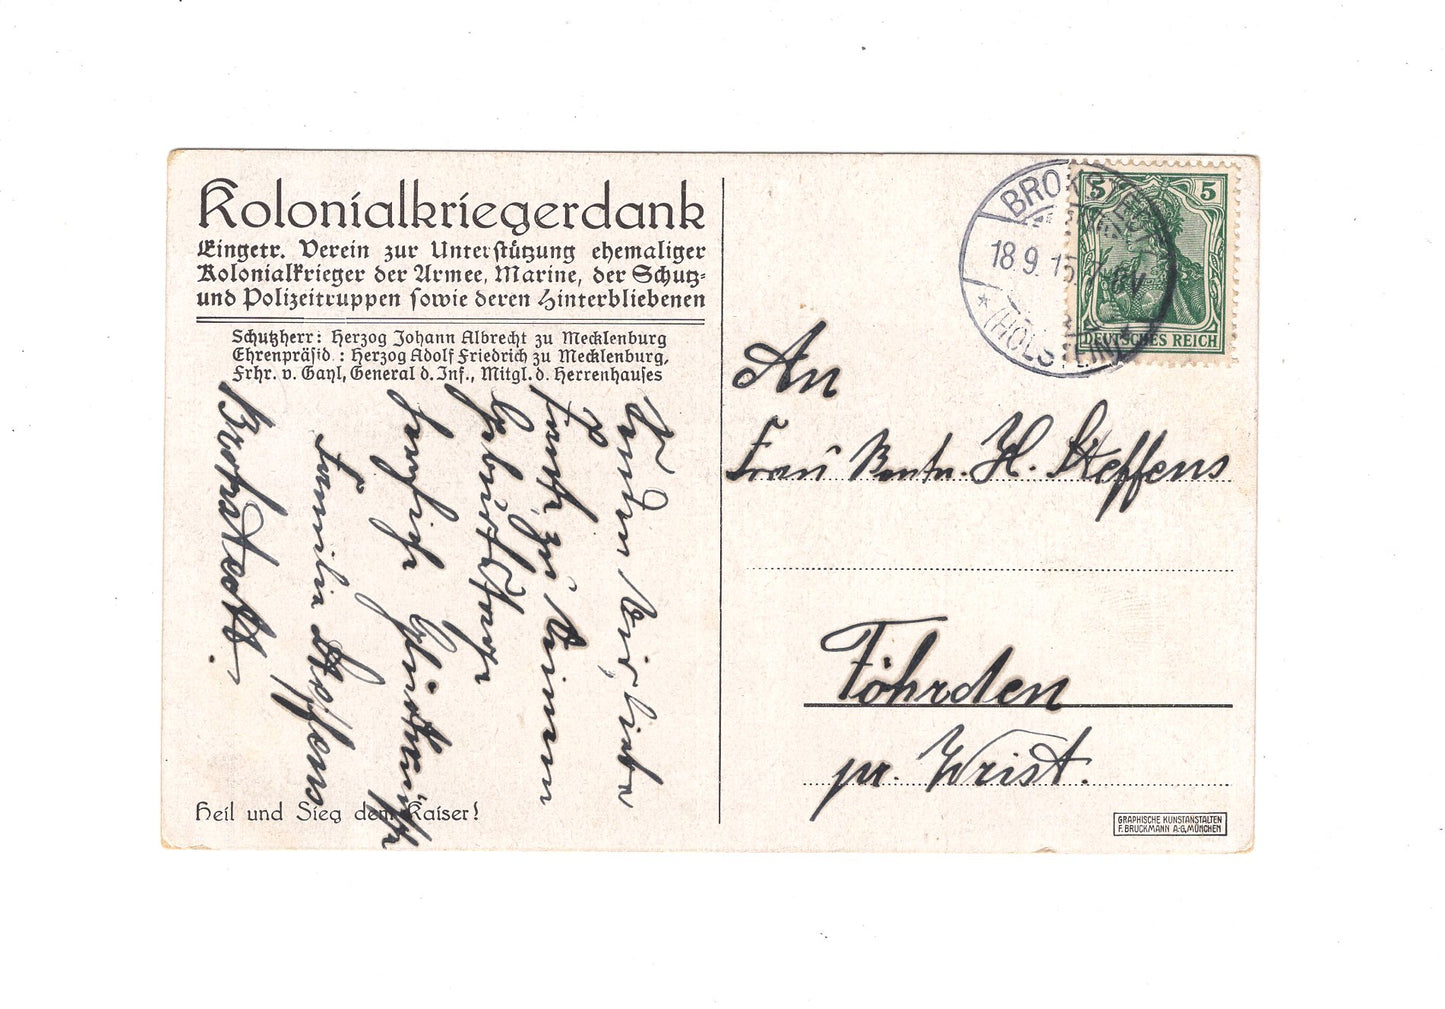 Kolonialkriegerdank
Eingetr. Verein zur Unterstützung ehemaliger
Kolonialkrieger der Armee, Marine, der Schutz=
und Polizeitruppen sowie deren Hinterbliebenen
Schutzherr: Herzog Johann Albrecht zu Mecklenburg
Ehrenpräsid.: Herzog Adolf Friedrich zu Mecklenburg,
Frhr. v. Gayl, General d. Inf., Mitgl. d. Herrenhauses
liebe
zu Deinem
Geburtstage
herzlich Glückwünsche
Familie Steffens
Brokstedt.
Heil und Sieg dem Kaiser!
BROKSTEDT
18.9.15. 7-8V
* (HOLSTEIN) *
5 5
DEUTSCHES REICH
An
Frau Rentn. H. Steffens
Föhrden
pr. Wrist.
GRAPHISCHE KUNSTANSTALTEN
F. BRUCKMANN A.-G, MÜNCHEN